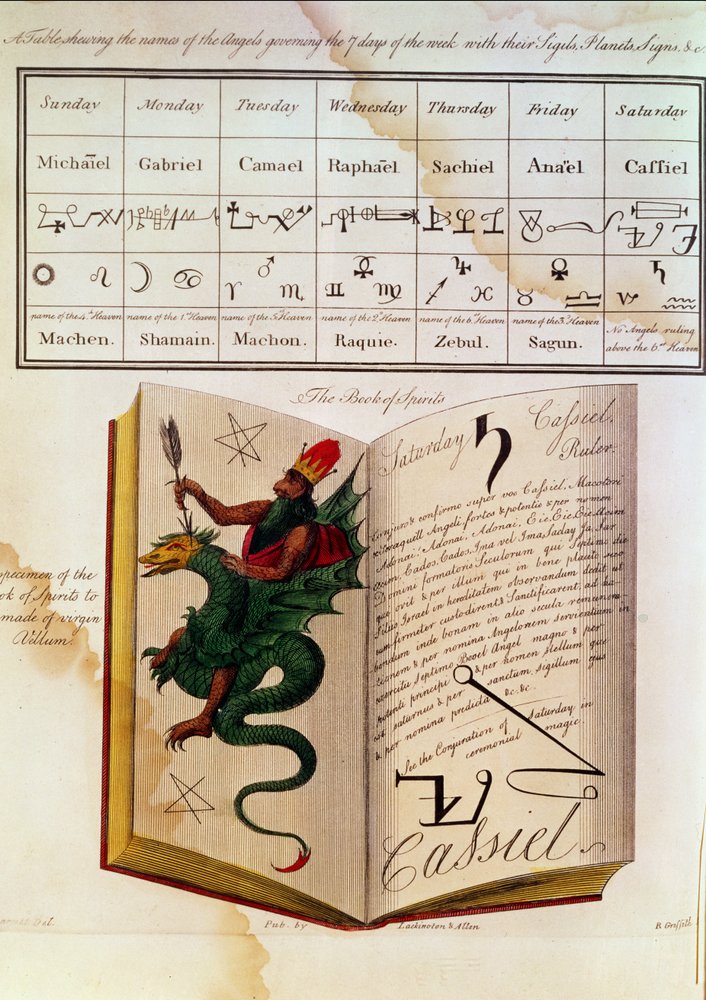 A Table shewing the names of the Angels governing the 7 days of the week with their Sigils, Planets, Signs, &c.
Sunday Monday Tuesday Wednesday Thursday Friday Saturday
Michaïel Gabriel Camael Raphaël Sachiel Anaël Caſſiel
☉ ♌ ☽ ♋ ♂ ♈ ♏ ☿ ♊ ♍ ♃ ♐ ♓ ♀ ♉ ♎ ♄ ♑ ♒
name of the 4th Heaven name of the 1st Heaven name of the 5th Heaven name of the 2d Heaven name of the 6th Heaven name of the 3d Heaven No Angels ruling
Machen. Shamain. Machon. Raquie. Zebul. Sagun. above the 6th Heaven
The Book of Spirits
Saturday ♄ Caſsiel.
Ruler.
Conjuro & confirmo super vos Caſsiel, Macatori
& Seraquill Angeli fortes & potentis & per nomen
Adonai, Adonai, Adonai, Eie, Eie, Eie, Acim
Acim, Cados, Cados, Ima vel Ima, Saday Ja, Sar
Domini formatoris Seculorum qui Septimo die
quo ovit & per illum qui in bene placito suo
Filiis Israel in hereditatem observandum dedit ut
eum firmeter custodirent & Sanctificarent, ad ha-
bendum inde bonam in alio secula remunera-
tionem & per nomina Angelorem servientium in
exercitu Septimo Booel Angel magno & per
potenti principi & per nomen stellum quæ
est saturnus & per sanctum sigillum ejus
& per nomina predicta &c. &c.
See the Conjuration of Saturday, in
ceremonial magic.
Caſsiel.
specimen of the
Book of Spirits to
made of virgin
Vellum.
Del.
Pub. by Lackington & Allen
R Griffith